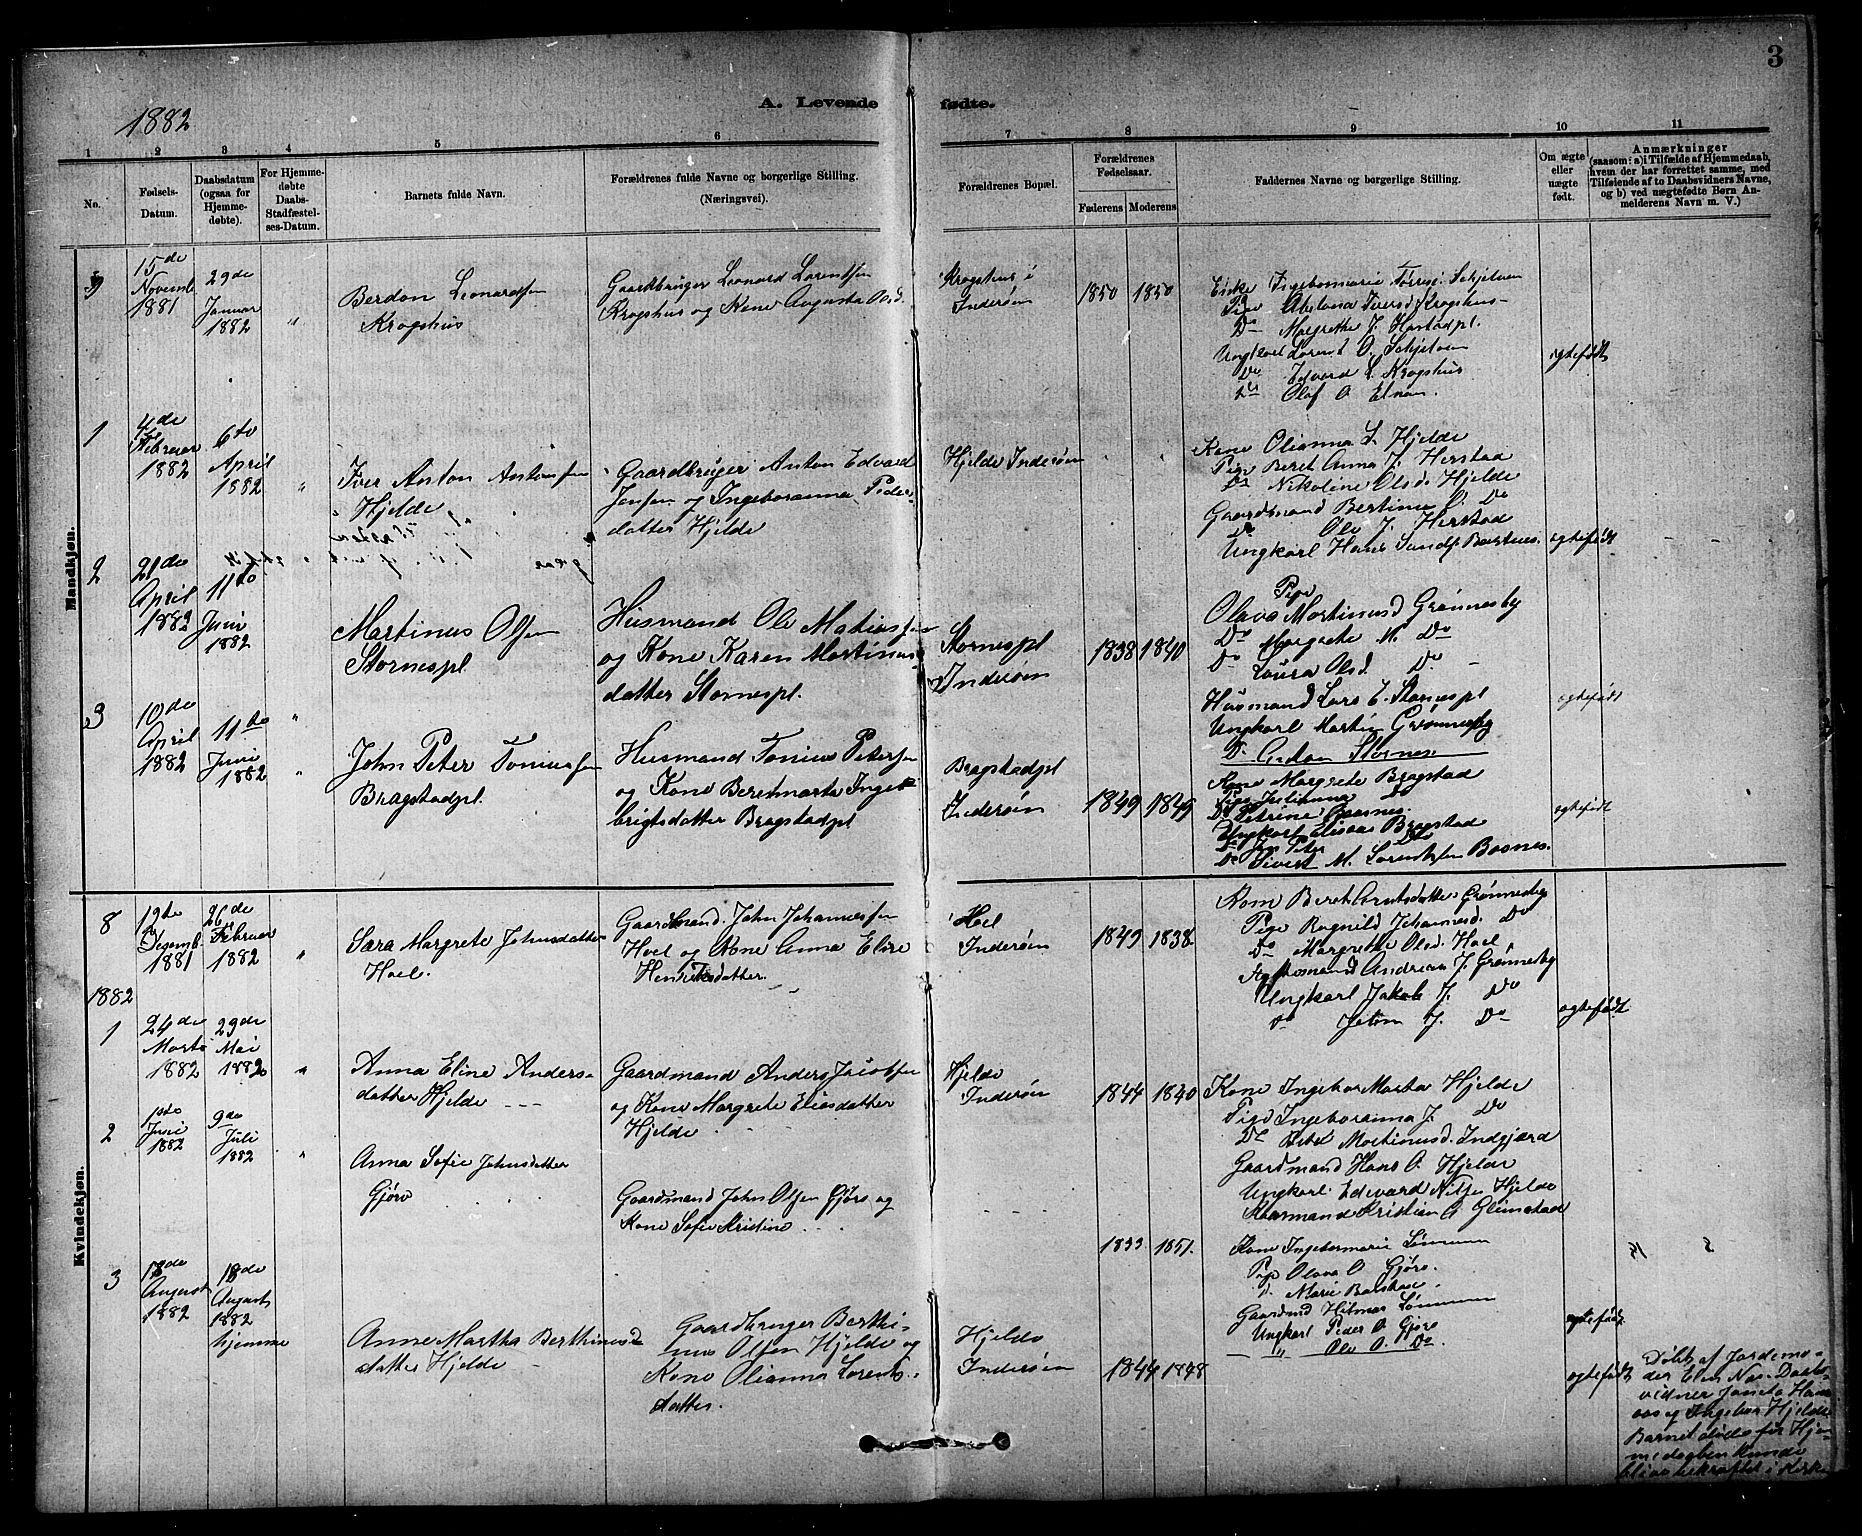 3
1882
A. Levende fødte.
1 2 3 4 5 6 7 8 9 10 11
No.
Fødsels-
Datum.
Daabsdatum
(ogsaa for
Hjemme-
døbte).
For Hjemme-
døbte
Daabs-
Stadfæstel-
ses-Datum.
Barnets fulde Navn.
Forældrenes fulde Navne og borgerlige Stilling.
(Næringsvei).
Forældrenes Bopæl.
Forældrenes
Fødselsaar.
Faderens Moderens
Faddernes Navne og borgerlige Stilling.
Om ægte
eller
uægte
født.
Anmærkninger
(saasom: a) i Tilfælde af Hjemmedaab,
hvem der har forrettet samme, med
Tilføiende af to Daabsvidners Navne,
og b) ved uægtefødte Børn An-
melderens Navn m. V.)
Mandkjøn.
15de
Novemb
1881
29de
Januar
1882
"
Berdon Leonardsen
Krogshus
Gaardbruger Leonard Lorentsen
Krogshus og Kone Augusta Olsd.
Krogshus i
Inderøen
1850 1850
Enke Ingebormarie Schjelven
Pige Abelona Iversd. Krogshus
Do Margrethe J. Hastadpl.
Ungkarl Lorents O. Schjelven
Do Edvard L. Krogshus
Do Olaf O. Elnan.
ægtefødt
1
4de
Februar
1882
6te
April
1882
"
Iver Anton Antonsen
Hjelde
Gaardbruger Anton Edvard
Jensen og Ingeboranna Peder-
datter Hjelde
Hjelde Inderøen
Kone Olianna L. Hjelde
Pige Beret Anna J. Herstad
Do Nikoline Olsd. Hjelde
Gaardmand Bertinus O. Do
Do Ole J. Herstad
Ungkarl Hans
ægtefødt
2
21de
April
1882
11te
Juni
1882
Martinus Olsen
Stornespl.
Husmand Ole Matiassen
og Kone Karen Martinus
datter Stornespl.
Stornespl
Inderøen
1838 1840
Pige
Olava Martinusd Grønnesby
Do Margrete M. Do
Do Laura Olsd. Do
Husmand Lars E. Stornespl
Ungkarl Martin Grønnesby
Do Anton Stornes.
ægtefødt
3
10de
April
1882
11te
Juni
1882
"
John Peter Toniussen
Bragstadpl.
Husmand Tonius Petersen
og Kone Beretmarta Inge-
brigtsdatter Bragstadpl
Bragstadpl
Inderøen
1849 1849
Kone Margrete Bragstad
Pige Julianna Do
Do Petrine
Ungkarl Elias Bragstad
Do Peter Do
Do Sivert M. Lorentsen Bosnes.
ægtefødt
Kvindekjøn.
8
19de
Desemb.
1881
26de
Februar
1882
"
Sara Margrete Johnsdatter
Hoel.
Gaardmand John Johannessen
Hoel og Kone Anna Eline
Henriksdatter.
Hoel
Inderøen
1849 1838
Kone Beret Arntsdatter Grønnesby
Pige Ragnild Johannesd. Do
Do Margrethe Olsd. Hoel
Andreas J. Grønnesby
Ungkarl Jakob J. Do
Do Johan J. Do
ægtefødt
1882
1
24de
Marts
1882
29de
Mai
1882
"
Anna Eline Anders-
datter Hjelde
Gaardmand Anders Jacobsen
og Kone Margrete Eliasdatter
Hjelde
Hjelde
Inderøen
1844 1840
Kone Ingebor Marta Hjelde
Pige Ingeboranna J. Do
Do Martinusd. Indgjærd
Gaardmand Hans O. Hjelde
Ungkarl Edevard Nilsen Hjelde
Kaarmand Kristian A. Glimstad
2
1ste
Juni
1882
9de
Juli
1882
"
Anna Sofie Johnsdatter
Gjørv
Gaardmand John Olsen Gjørv og
Kone Sofie Kristine
1833 1851.
Kone Ingebormarie
Pige Olava O. Gjørv.
Do Marie Balstad.
Gaardmd Hilmar
Ungkarl Peder O. Gjørv
" Ole O. Do.
ægtefødt
3
13de
August
1882
18de
August
1882
hjemme
Anne Martha Berthinus-
datter Hjelde
Gaardbruger Berthi-
nus Olsen Hjelde og
Kone Olianna Lorents-
datter.
Hjelde
Inderøen
1844 1848
ægtefødt
Døbt af Jordemo-
der Elen Daabs-
vidner
og Ingebor Hjelde
Barnet døde før Hjem-
medaaben kunde
blive bekræftet i Kirke